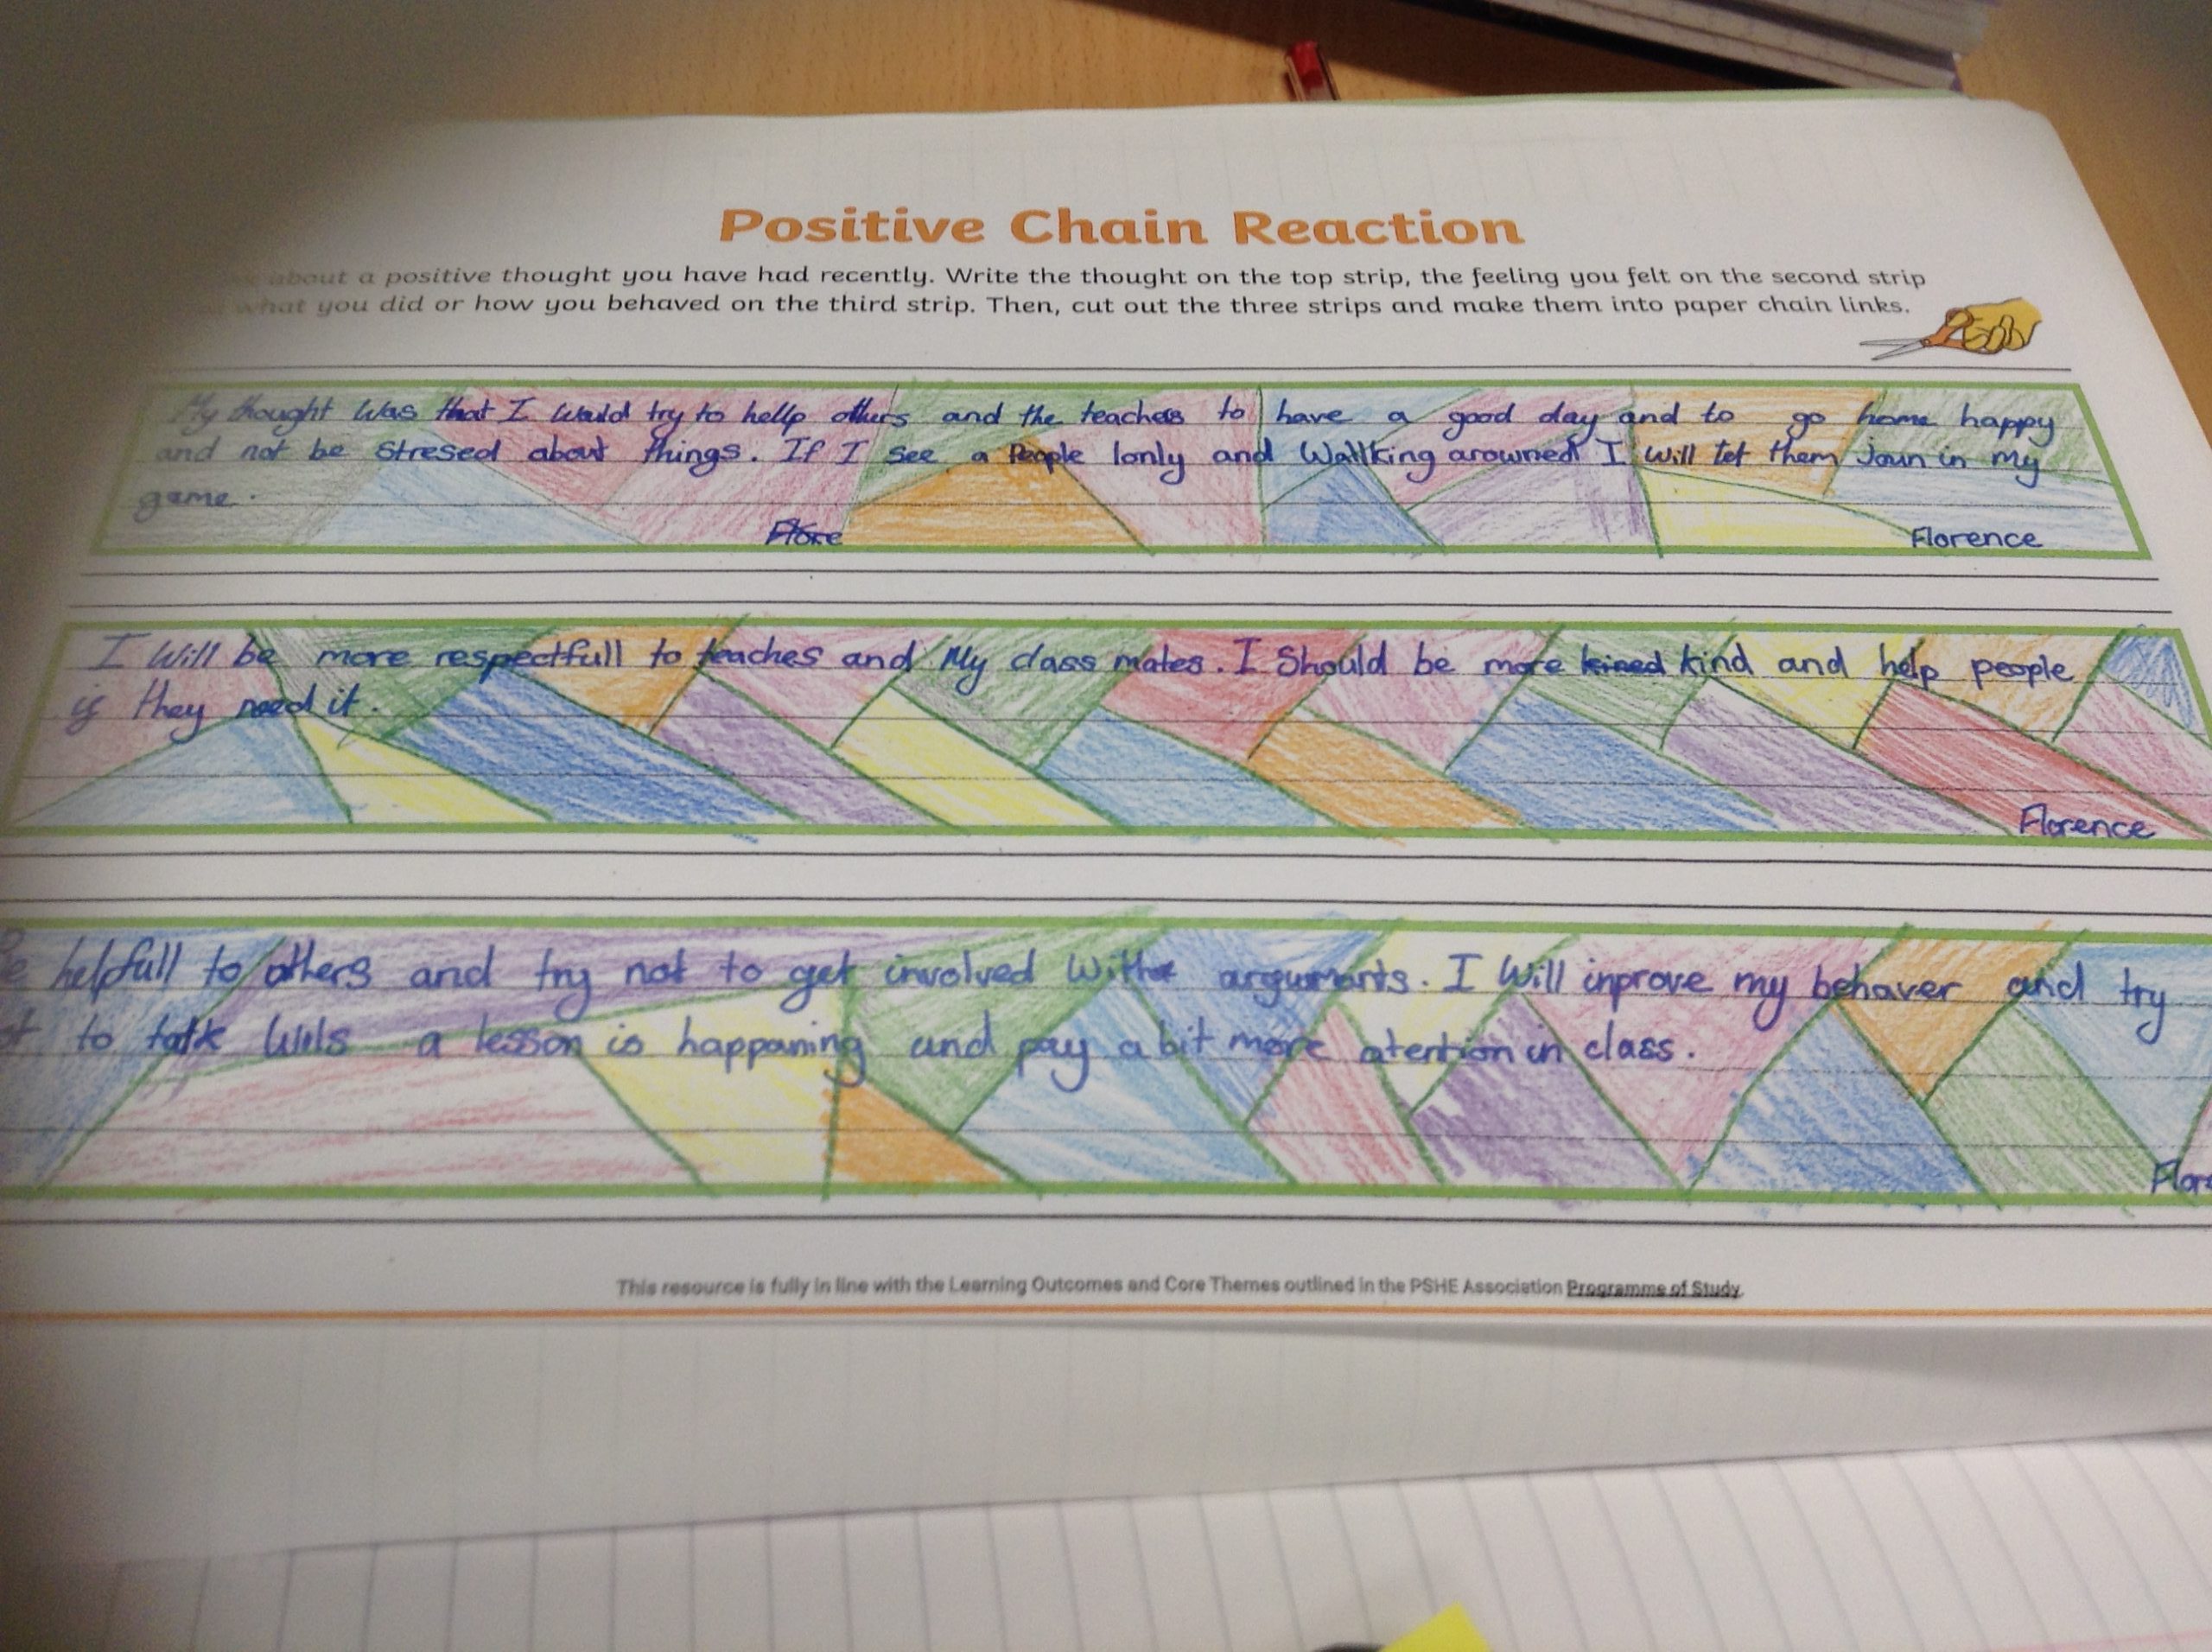 Positive Chain Reaction
about a positive thought you have had recently. Write the thought on the top strip, the feeling you felt on the second strip
what you did or how you behaved on the third strip. Then, cut out the three strips and make them into paper chain links.
My thought was that I would try to hellp others and the teachers to have a good day and to go home happy
and not be stresed about things. If I see a People lonly and Wallking arowned I will let them joun in my
game.
Flore
Florence
I Will be more respectfull to teaches and My class mates. I Should be more kined kind and help people
if they need it.
Florence
helpfull to others and try not to get involved with arguments. I Will inprove my behaver and try
to talk wils a lesson is happaning and pay a bit more atention in class.
Flore
This resource is fully in line with the Learning Outcomes and Core Themes outlined in the PSHE Association Programme of Study.